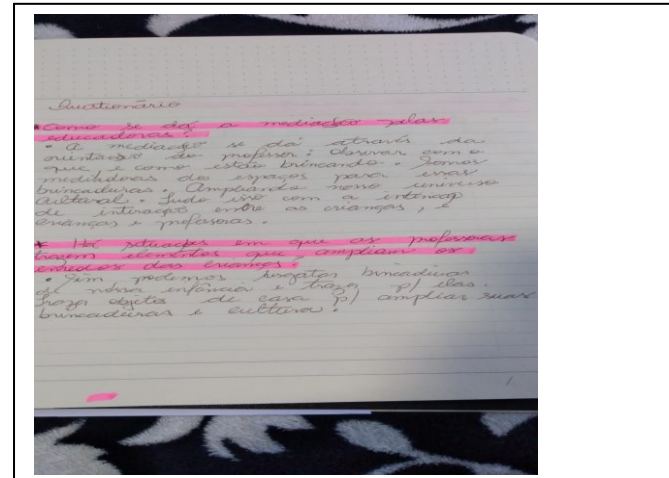 Questionário
* Como se dá a mediação pelas
educadoras?
• A mediação se dá através da
orientação do professor: Observar com o
que, e como estão brincando. Somos
mediadoras dos espaços para essas
brincadeiras. Ampliando nosso universo
cultural. Tudo isso com a intenção
de interação entre as crianças, e
crianças e professoras.
* Há situações em que as professoras
trazem elementos que ampliam os
enredos das crianças
• Sim podemos resgatar brincadeiras
de nossa infância e trazer p/ elas.
Trazer objetos de casa p/ ampliar suas
brincadeiras e cultura.